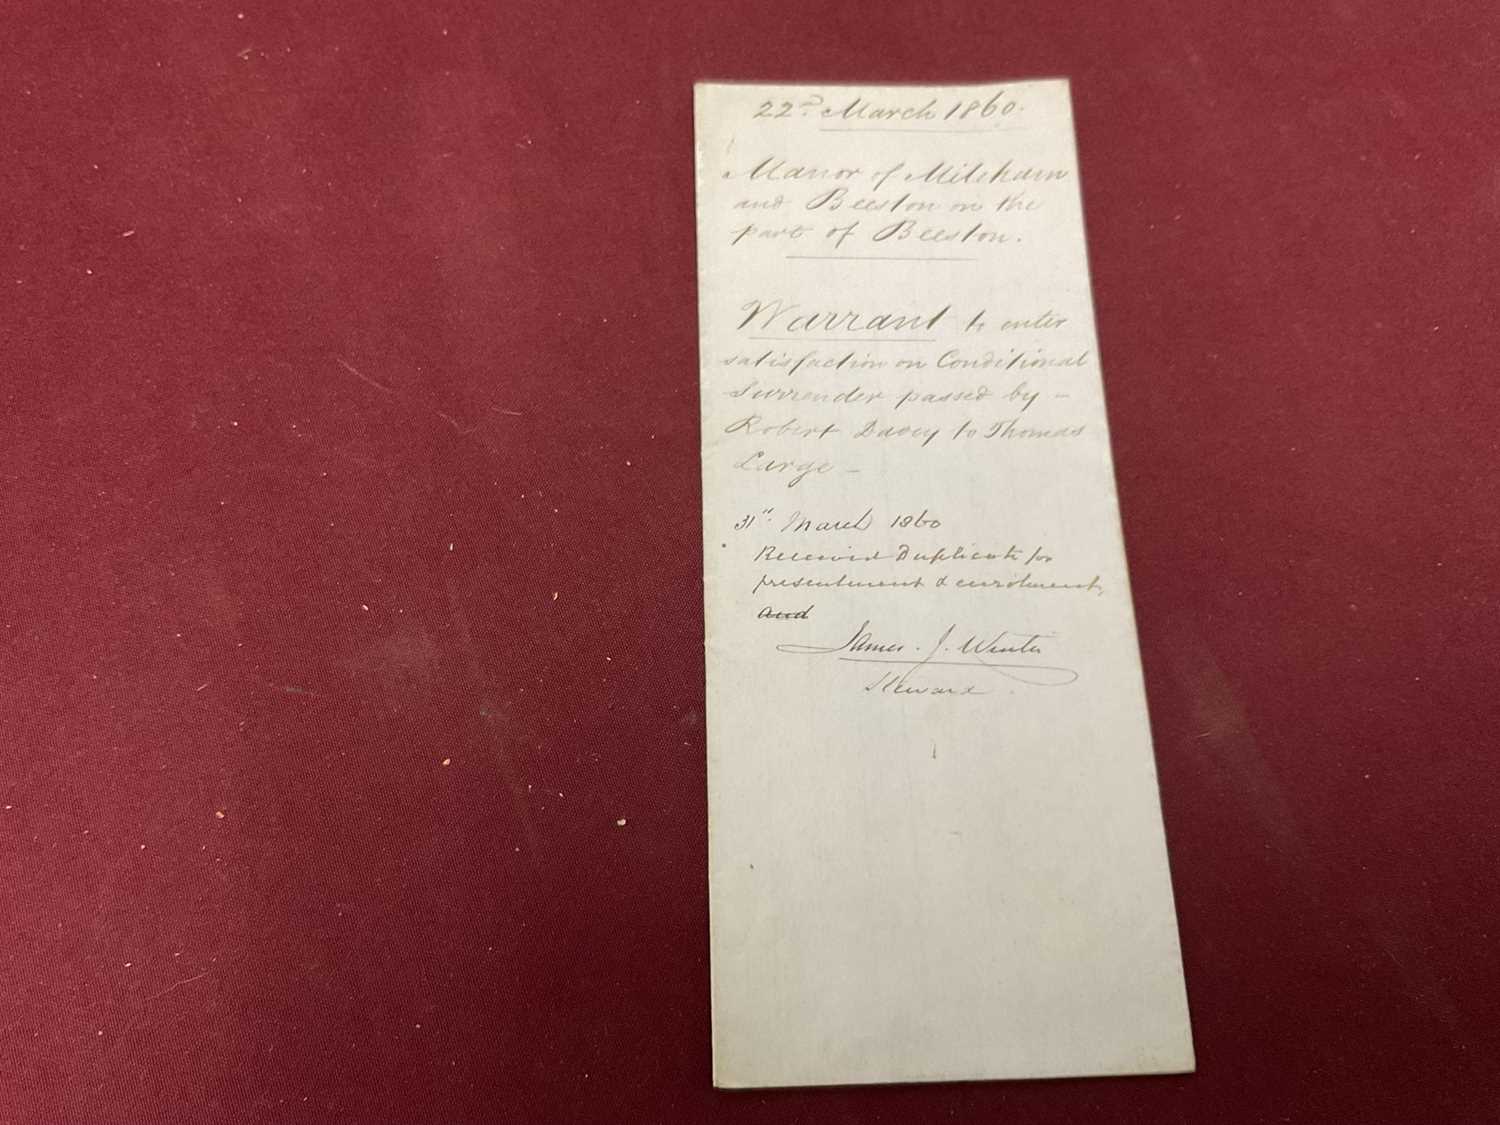 22d. March 1860.
Manor of Mileham
and Beeston on the
part of Beeston.
Warrant to enter
satisfaction on Conditional
Surrender passed by –
Robert Davey to Thomas
Large –
31st. March 1860
Received Duplicate for
presentment & enrolment,
and
James. J. Winter
Steward